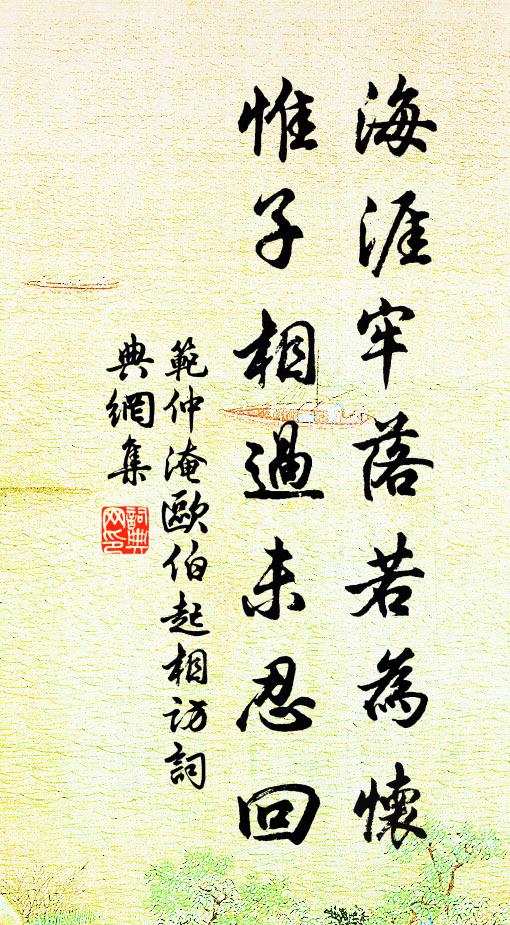 海涯牢落若為懷
惟子相過未忍回
範仲淹歐伯起相訪詞
典網集
詞典
网印